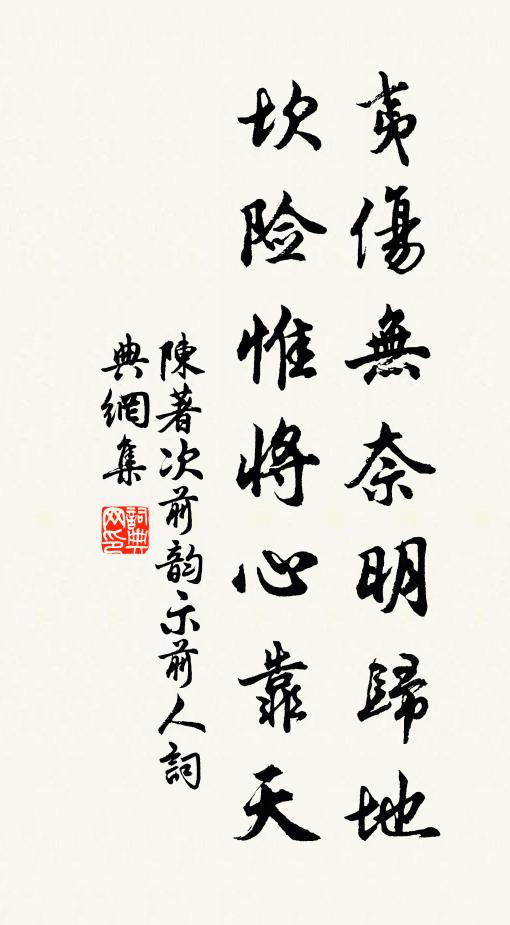 夷傷無奈明歸地
坎险惟将心靠天
陳著次前韵示前人詞
典網集
詞典
网印